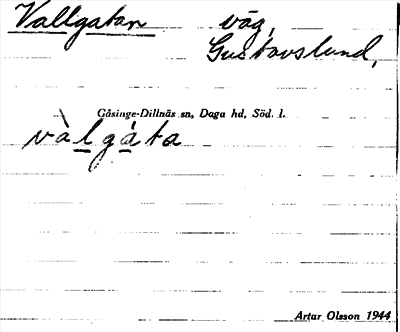 Vallgatan väg,
Gustavslund,
Gåsinge-Dillnäs sn, Daga hd, Söd. l.
vàlgáta
Artur Olsson 1944